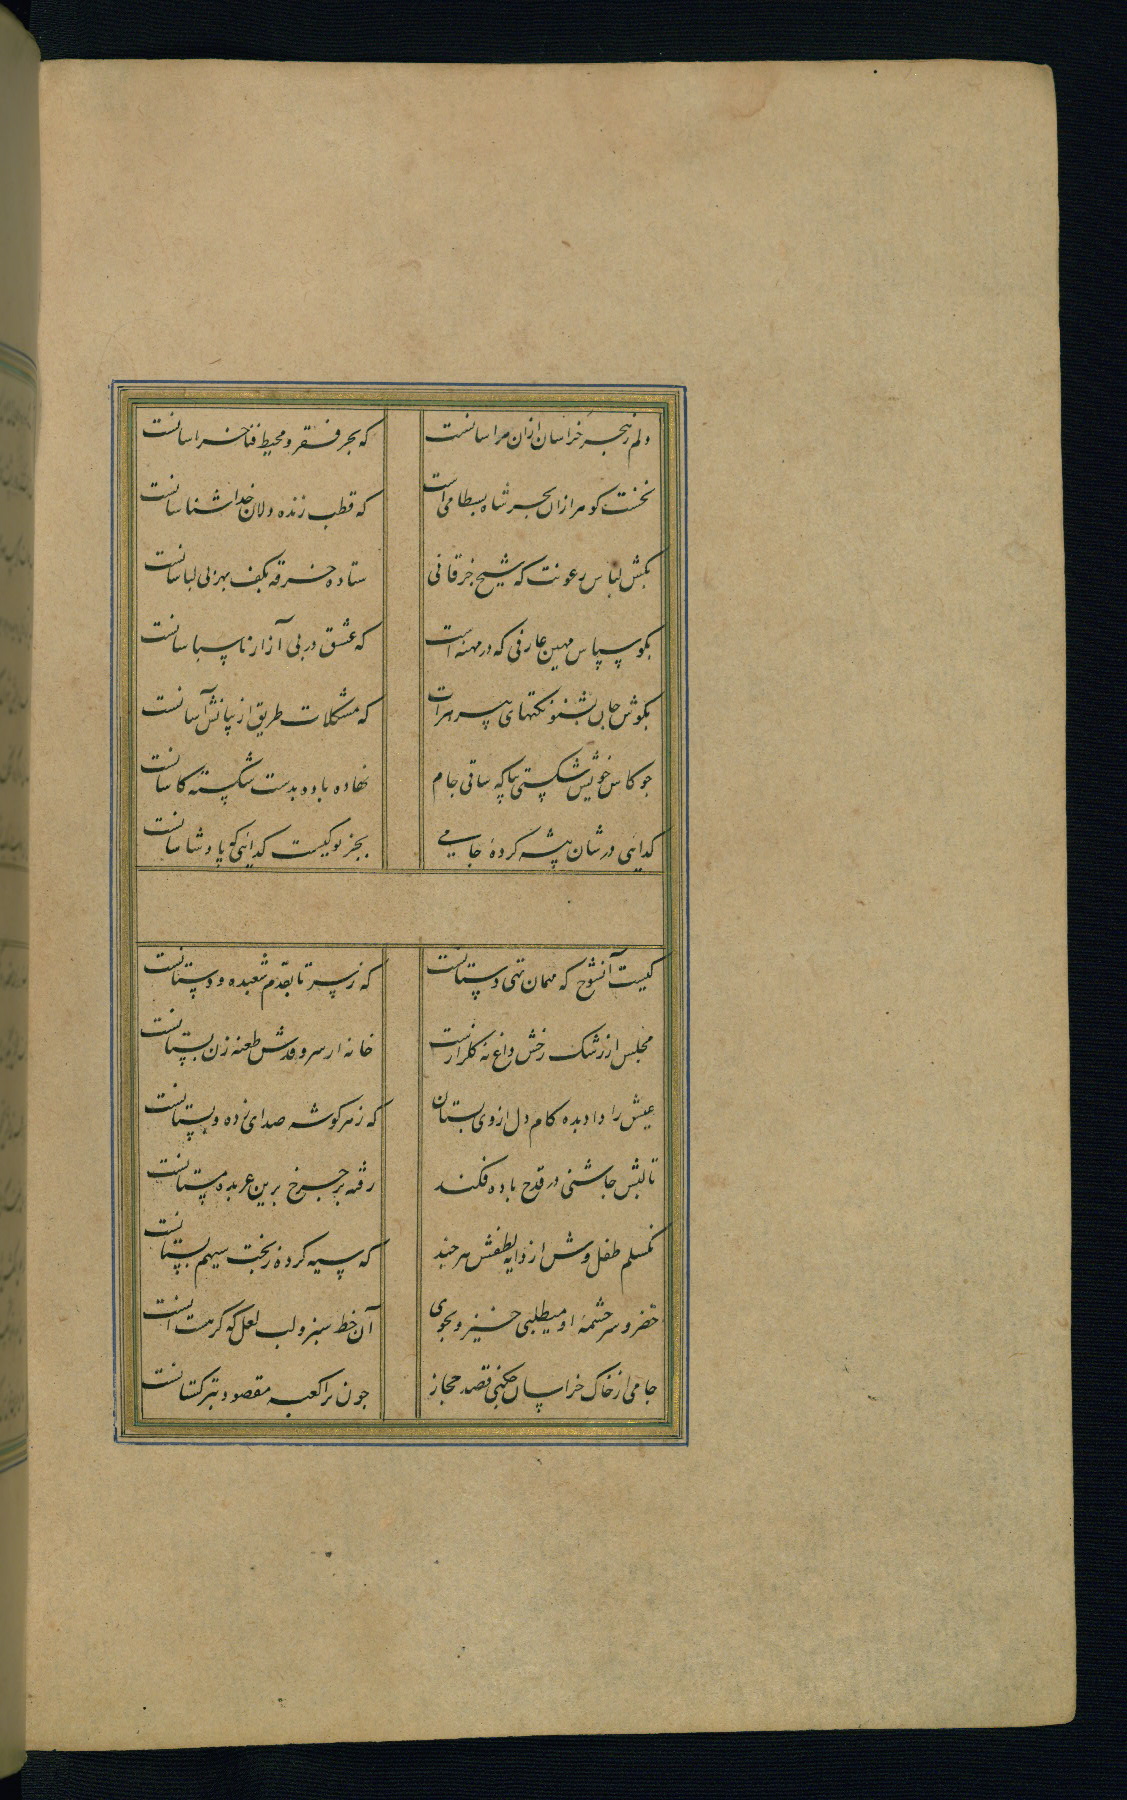 دلم ز هجر خراسان ازان هراسانست که بحر فقر و محیط فنا خراسانست
نخست گوهر ازان بحر شاه بسطامی است که قطب زنده دلان خداشناسانست
بکش لباس رعونت که شیخ خرقانی ستاده خرقه بکف بهر بی لباسانست
بگو سپاس مهین عارفی که در مهنه است که عشق در پی آزار ناسپاسانست
بگوش جان بشنو نکتهای پیر هرات که مشکلات طریق از بیانش آسانست
چو کاس خویش شکستی بیا که ساقی جام نهاده باده بدست شکسته کاسانست
گدایی در شان پیشه کردهٔ جامی بجز تو کیست گدایی که پادشاسانست
کیست آن شوخ که مهمان تهی دستانست که ز سر تا بقدم شعبده و دستانست
مجلس از رشک رخش داغ نه گلزارست خانه از سرو قدش طعنه زن بستانست
عیش را داد بده کام دل از وی بستان که ز هر گوشه صدای بده و بستانست
تا لبش چاشنی در قدح باده فکند رفته بر چرخ برین عربده مستانست
نگسلم طفل وش از دایه لطفش هر چند که سیه کرده ز بخت سیهم پستانست
خضر و سرچشمهٔ او میطلبی خیز و بجوی آن خط سبز و لب لعل که گر هست آنست
جامی از خاک خراسان چکنی قصد حجاز چون ترا کعبه مقصود بترکستانست